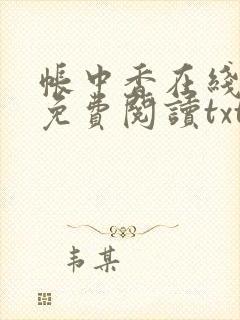 帳中香在綫
免費閱讀txt
韦某